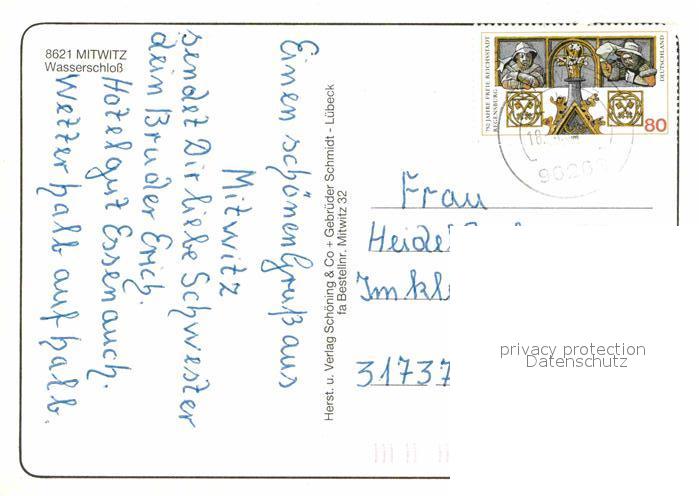 8621 MITWITZ
Wasserschloß
Einen schönen Gruß aus
Mitwitz
sendet Dir liebe Schwester
dein Bruder Erich.
Hotel gut Essen auch.
Wetter halb auf halb.
Herst. u. Verlag Schöning & Co + Gebrüder Schmidt - Lübeck
fa Bestellnr. Mitwitz 32
750 JAHRE FREIE REICHSSTADT
REGENSBURG
DEUTSCHLAND
80
Frau
Im kl
31737
privacy protection
Datenschutz